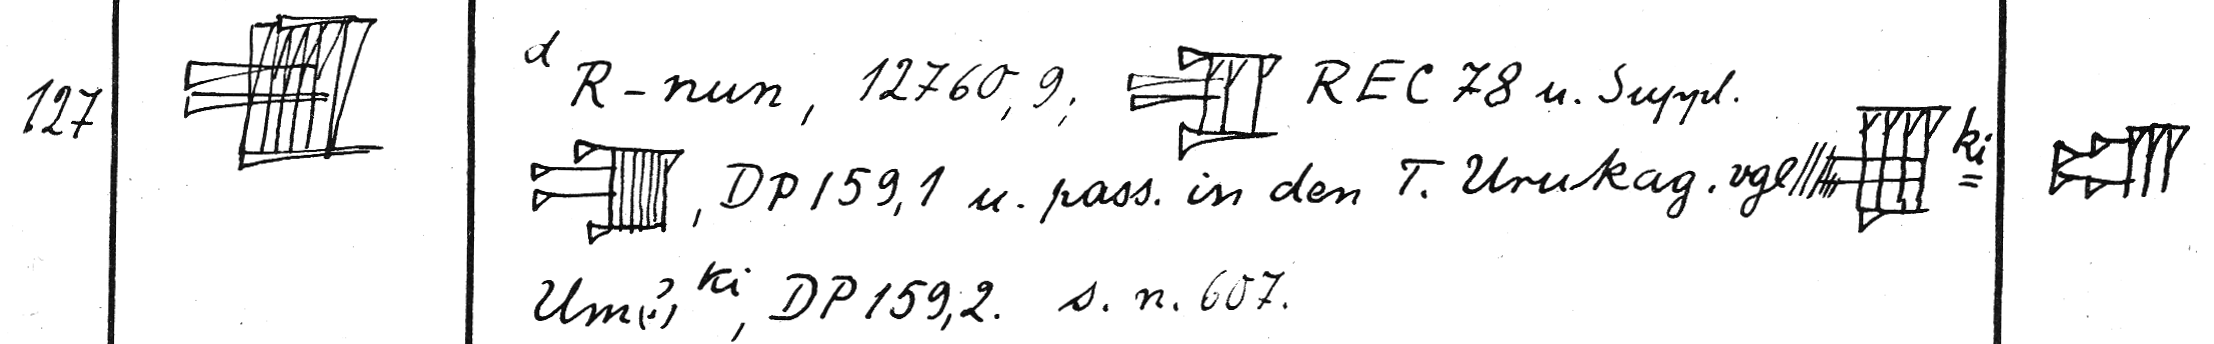 127 ᵈR-nun, 12760,9; REC 78 u. Suppl.
, DP 159,1 u. pass. in den T. Urukag. vgl ki =
Um(?) ki, DP 159,2. s. n. 607.